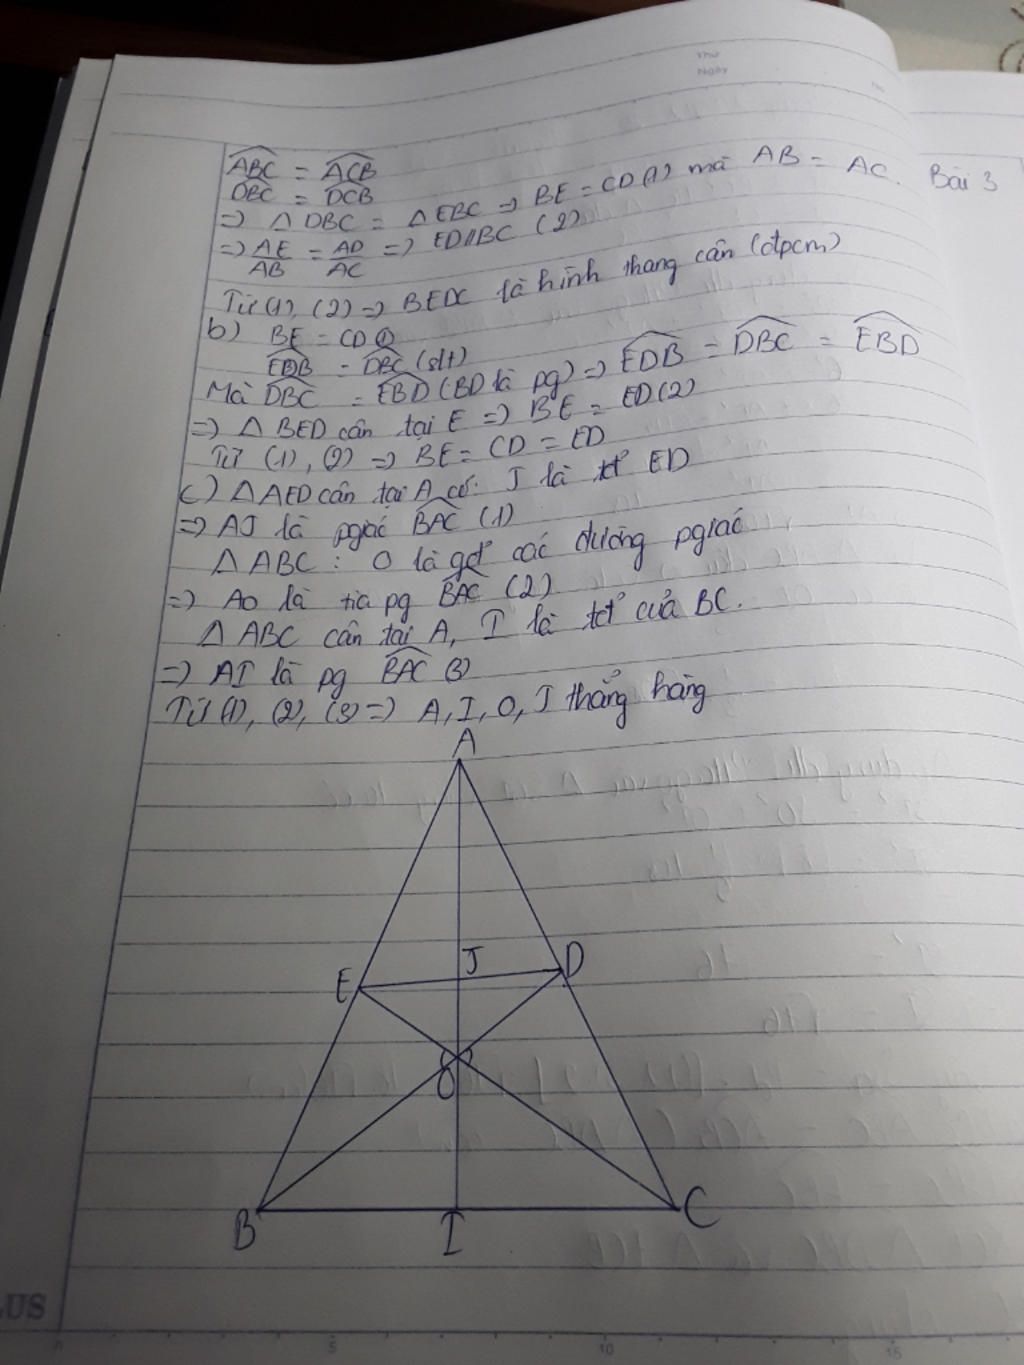 Thứ
Ngày
No
Bài 3
$\widehat{ABC}$ = $\widehat{ACB}$
$\widehat{DBC}$ = $\widehat{DCB}$
=> △ DBC = △ EBC => BE = CD (1) mà AB = AC.
=> AE/AB = AD/AC => ED//BC (2)
Từ (1), (2) => BEDC là hình thang cân (đpcm)
b) BE = CD ①
$\widehat{EDB}$ = $\widehat{DBC}$ (slt)
Mà $\widehat{DBC}$ = $\widehat{EBD}$ (BD là pg) => $\widehat{EDB}$ = $\widehat{DBC}$ = $\widehat{EBD}$
=> △ BED cân tại E => BE = ED (2)
Từ (1), (2) => BE = CD = ED
c) △ AED cân tại A có: J là tđ ED
=> AJ là pgiác $\widehat{BAC}$ (1)
△ ABC: O là gđ các đường pgiác
=> AO là tia pg $\widehat{BAC}$ (2)
△ ABC cân tại A, I là tđ của BC.
=> AI là pg $\widehat{BAC}$ (3)
Từ (1), (2), (3) => A, I, O, J thẳng hàng
A
E J D
O
B I C
LUS
5 10 15